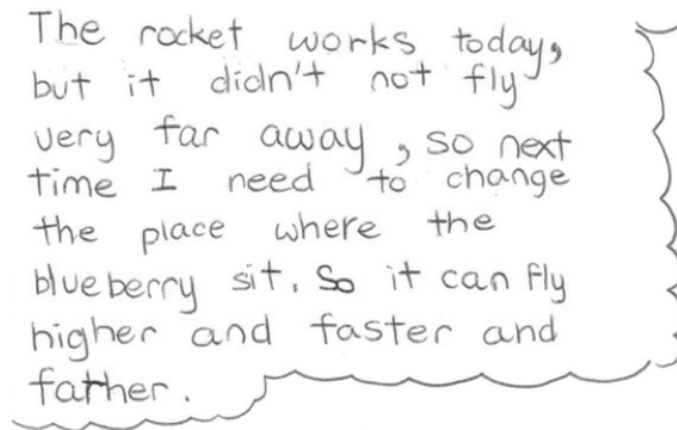 The rocket works today,
but it didn't not fly
very far away, so next
time I need to change
the place where the
blueberry sit. So it can fly
higher and faster and
farher.